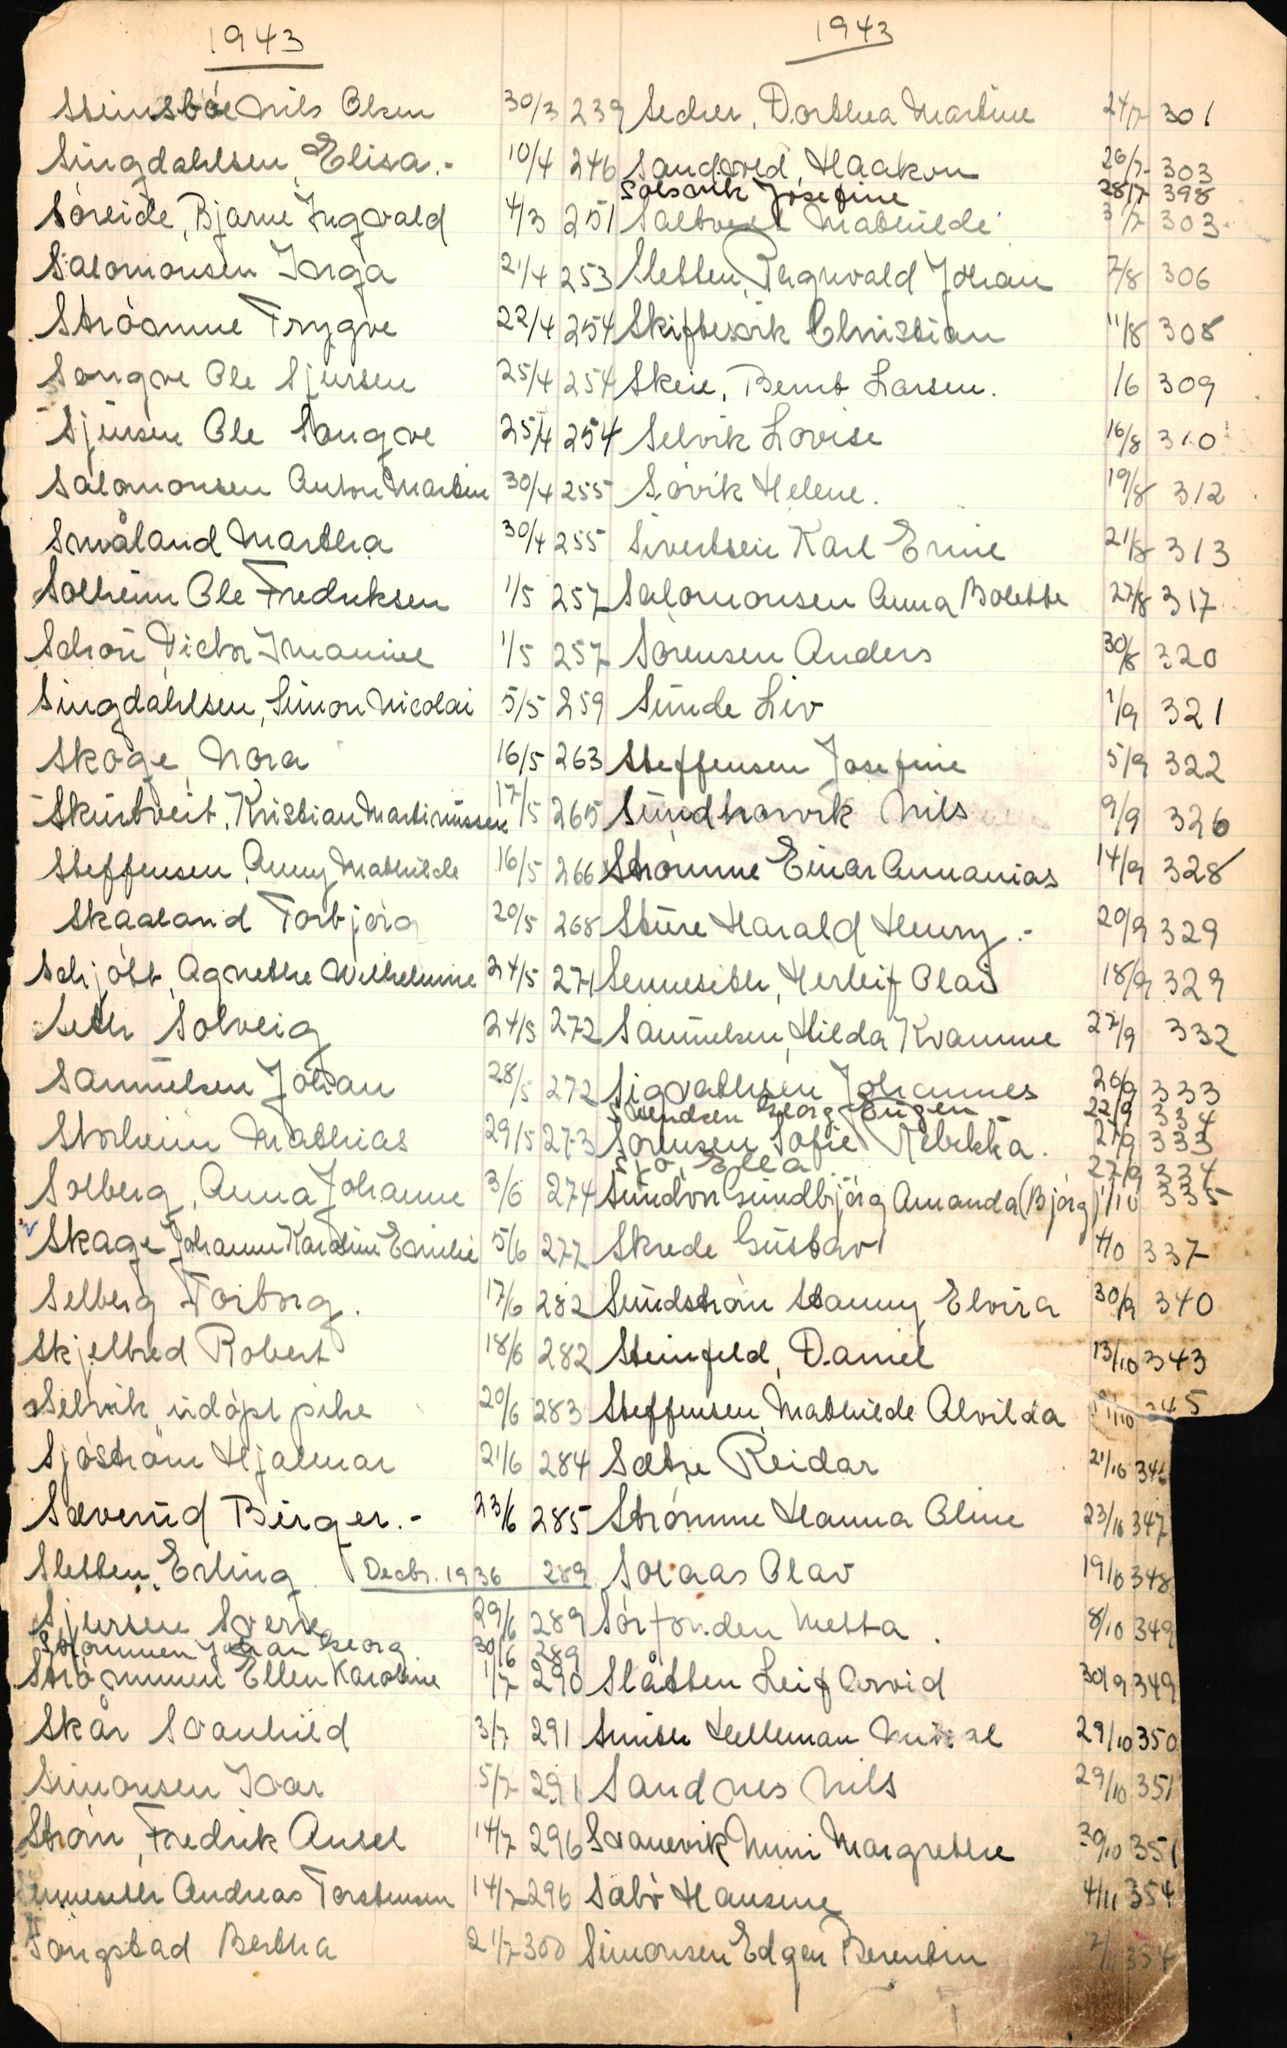 1943
Steinsböe Nils Olsen 30/3 239
Singdahlsen, Elisa.- 10/4 246
Söreide, Bjarne Ingvald 4/3 251
Salomonsen Inga 21/4 253
Strömme Trygve 22/4 254
Songve Ole Sjursen 25/4 254
Sjursen Ole Songve 25/4 254
Salomonsen Anton Martin 30/4 255
Småland Martha 30/4 255
Solheim Ole Fredriksen 1/5 257
Schön Victor Imanuel 1/5 257
Singdahlsen, Simon Nicolai 5/5 259
Skoge Nora 16/5 263
Skurtveit, Kristian Martinussen 17/5 265
Steffensen, Anny Mathilde 16/5 266
Skaaland Torbjörg 20/5 268
Schjött, Agnethe Wilhelmine 24/5 271
Seth Solveig 24/5 272
Samuelsen Johan 28/5 272
Storheim Mathias 29/5 273
Solberg, Anna Johanne 3/6 274
Skage Johanne Karoline Emilie 5/6 277
Selberg Torborg. 17/6 282
Skjelbred Robert 18/6 282
Selvik udöpt pike 20/6 283
Sjöström Hjalmar 21/6 284
Sæverud Birger.- 23/6 285
Sletten, Erling Decbr. 1936 289
Sjursen Sverre 29/6 289
Strömmen Johan Georg 30/6 289
Strömmen Ellen Karoline 1/7 290
Skår Svanhild 3/7 291
Simonsen Ivar 5/7 291
Ström, Fredrik Ansel 14/7 296
enneseth Andreas Torstensen 14/7 296
Songstad Bertha 21/7 300
1943
Secher, Dorthea Martine 24/7 301
Sandved, Haakon 26/7 303
Solsvik Josefine 28/7 398
Saltveit Mathilde 31/7 303
Sletten, Ragnvald Johan 7/8 306
Skiftesvik Christian 11/8 308
Skeie, Bernt Larsen. 16 309
Selvik Lovise 16/8 310
Sövik Helene. 19/8 312
Sivertsen Karl Erine 21/8 313
Salomonsen Anna Bolette 27/8 317
Sörensen Anders 30/8 320
Sunde Liv 1/9 321
Steffensen Josefine 5/9 322
Sundhorvik Nils 9/9 326
Strömme Einar Annanias 14/9 328
Sture Harald Henry.- 20/9 329
Senneseth, Herleif Olai 18/9 329
Samuelsen, Hilda Kvamme 22/9 332
Sigvathsen Johannes 26/9 333
Svendsen Georg Eugen 22/9 334
Sörensen Sofie Rebekka. 21/9 333
Sjö, Ella 27/9 334
Sundvor Gundbjörg Amanda (Björg) 1/10 335
Skrede Gustav 4/10 337
Sundström Stanny Elvira 30/9 340
Steinfeld, Daniel 13/10 343
Steffensen, Mathilde Alvilda 345
Sætre Reidar 21/10 346
Strömme Hanna Oline 23/10 347
Solaas Olav 19/10 348
Sörfonden Metta. 8/10 349
Slåtten Leif Arvid 30/9 349
Smith Helleman 29/10 350
Sandnes Nils 29/10 351
Svanevik Mimi Margrethe 30/10 351
Sæbö Hansine 4/11 354
Simonsen Edgar Berentin 2/11 354